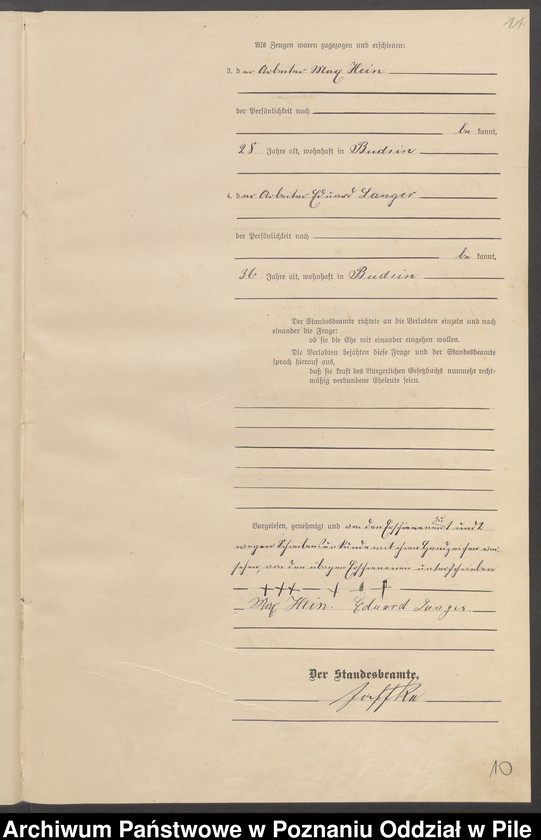 11
Als Zeugen waren zugezogen und erschienen:
3. der Arbeiter Max Hein
der Persönlichkeit nach
be kannt,
28 Jahre alt, wohnhaft in Budsin
4. der Arbeiter Eduard Langer
der Persönlichkeit nach
be kannt,
36 Jahre alt, wohnhaft in Budsin
Der Standesbeamte richtete an die Verlobten einzeln und nach
einander die Frage:
ob sie die Ehe mit einander eingehen wollen.
Die Verlobten bejahten diese Frage und der Standesbeamte
sprach hierauf aus,
daß sie kraft des Bürgerlichen Gesetzbuchs nunmehr recht-
mäßig verbundene Eheleute seien.
Vorgelesen, genehmigt und von den Erschienenen zu 1 und 2
wegen Schreibensunkunde mit ihren Handzeichen ver-
sehen, von den übrigen Erschienenen unterschrieben
+++ +++
Max Hein. Eduard Langer
Der Standesbeamte.
10
Archiwum Państwowe w Poznaniu Oddział w Pile